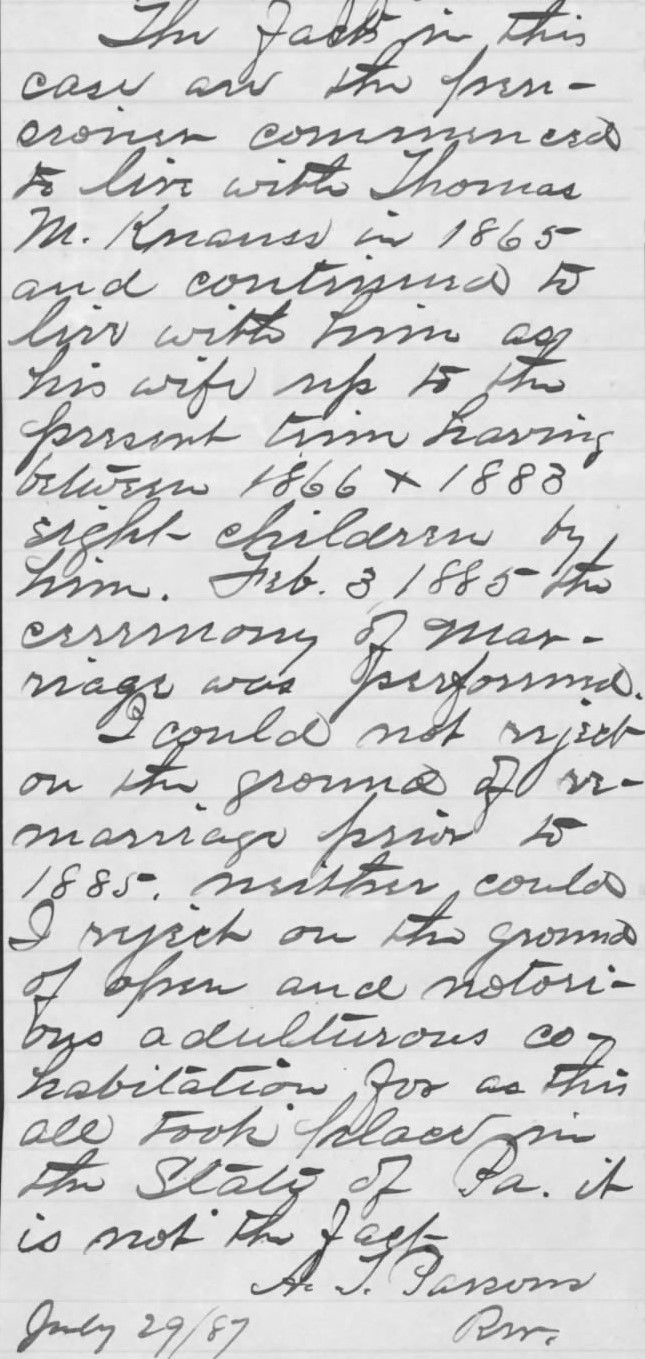 The facts in this
case are the pen-
sioner commenced
to live with Thomas
M. Knauss in 1865
and continued to
live with him as
his wife up to the
present time having
between 1866 + 1883
eight children by
him. Feb. 3, 1885 the
ceremony of mar-
riage was performed.
I could not reject
on the ground of re-
marriage prior to
1885, neither could
I reject on the ground
of open and notori-
ous adulturous co-
habitation for as this
all took place in
the State of Pa. it
is not the fact
A. T. Parsons
July 29/87 Rvr.